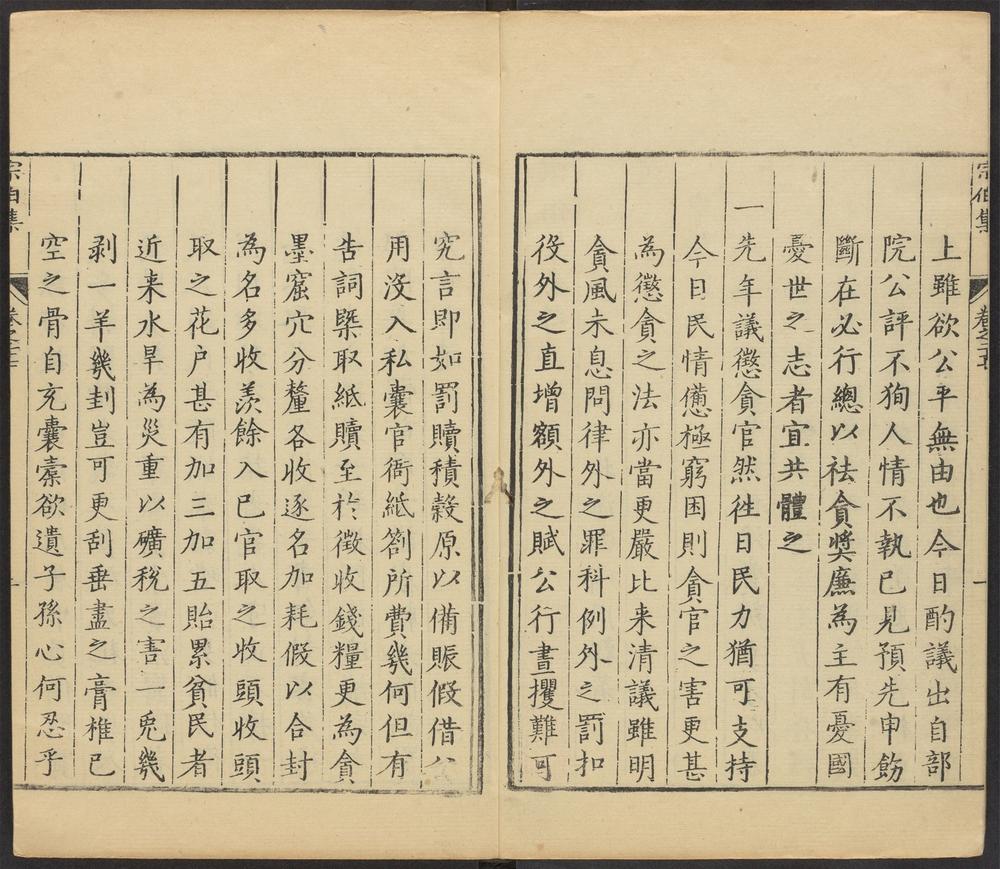 宗伯集
卷之
一
上雖欲公平無由也今日酌議出自部
院公評不狥人情不執已見預先申飭
斷在必行總以祛貪奬廉為主有憂國
憂世之志者宜共體之
一先年議懲貪官然徃日民力猶可支持
今日民情憊極窮困則貪官之害更甚
為懲貪之法亦當更嚴比来清議雖明
貪風未息問律外之罪科例外之罰扣
役外之直增額外之賦公行晝攫難可
究言即如罰贖積穀原以備賑假借公
用沒入私囊官衙紙劄所費幾何但有
告詞槩取紙贖至於徵收錢糧更為貪
墨窟穴分釐各收逐名加耗假以合封
為名多收羨餘入已官取之收頭收頭
取之花户甚有加三加五貽累貧民者
近来水旱為災重以礦稅之害一兎幾
剥一羊幾刲豈可更刮垂盡之膏椎已
空之骨自充囊槖欲遺子孫心何忍乎
宗伯集
卷之